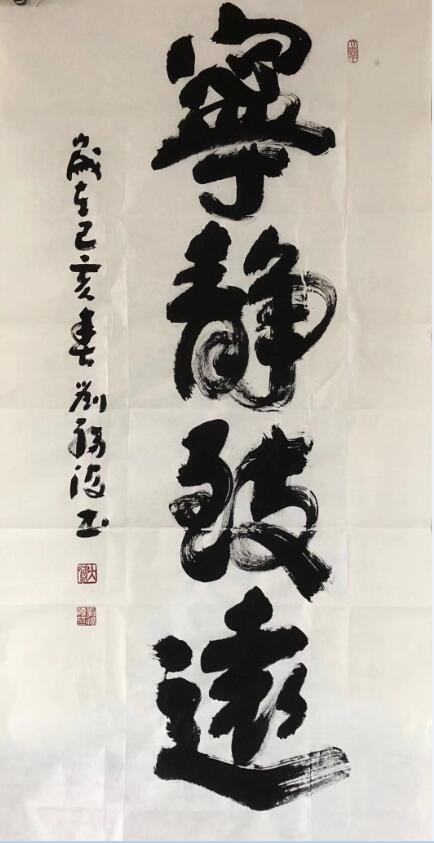 寧静致遠
歲在己亥春劉
書